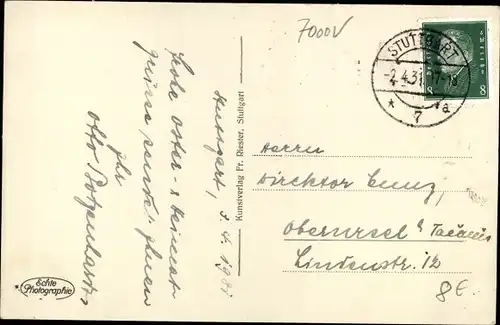 7000V
STUTTGART
-2.4.31.17-18
* 7 a
8 8
Stuttgart, 3.4.1931
Frohe Oster & Heimat-
grüsse sendet Ihnen
Ihr
Otto
Kunstverlag Fr. Riester, Stuttgart
Echte
Photographie
Herrn
Direktor
Oberursel Taunus
Lindenstr. 12
8E.